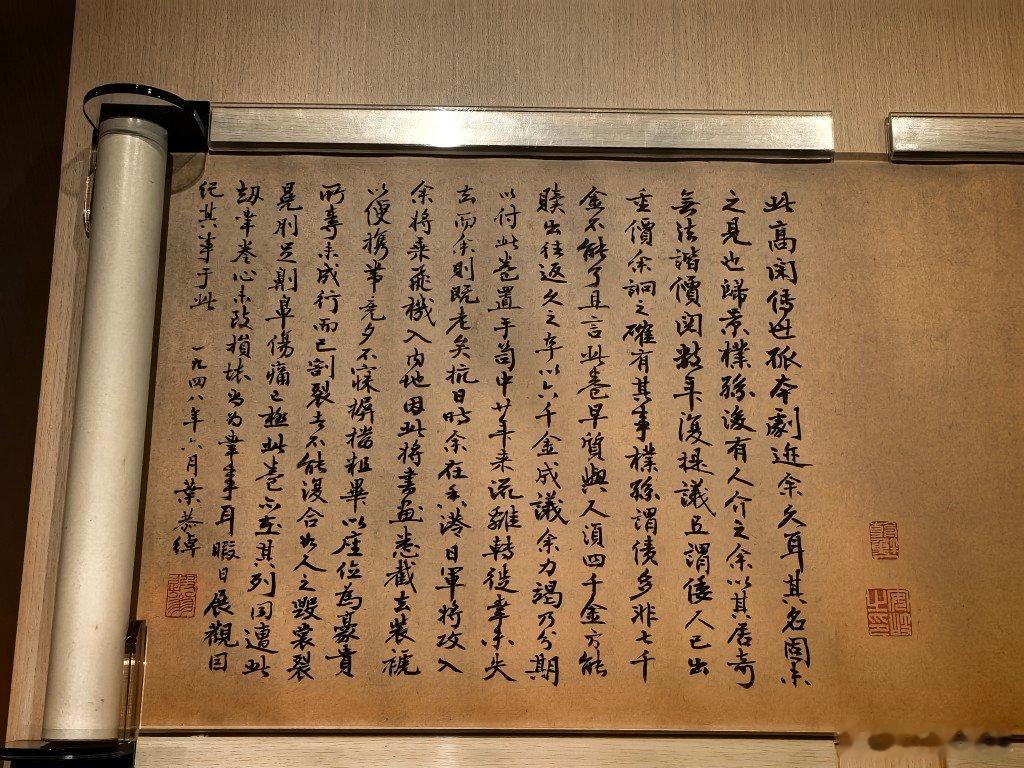 此高閑傳世孤本劇迹余久耳其名固未
之見也歸景樸孫後有人介之余以其居奇
無法諧價閱數年復提議且謂倭人已出
重價余詗之確有其事樸孫謂債多非七千
金不能了且言此卷早質與人須四千金方能
贖出往返久之卒以六千金成議余力竭乃分期
以付此卷置于笥中廿年来流離轉徙幸未失
去而余則既老矣抗日時余在香港日軍將攻入
余將乘飛機入内地因此將書畫悉截去裝褫
以便攜帶竟夕不寐摒擋粗畢以座位為豪貴
所奪未成行而已割裂者不能復合如人之毀裳裂
冕刖足劓鼻傷痛已極此卷亦在其列因遭此
劫幸卷心未致損 為幸事耳暇日展觀因
紀其事于此 一九四八年六月葉恭綽